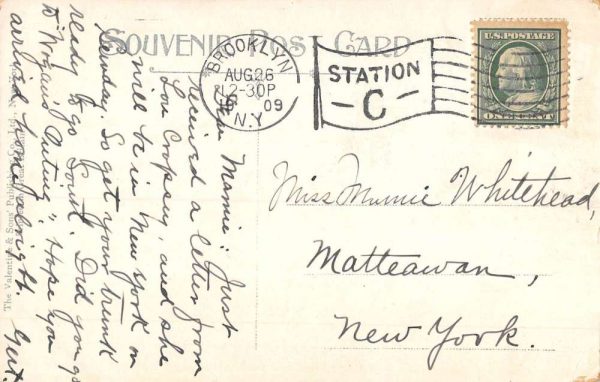 SOUVENIR POST CARD
BROOKLYN
AUG 26
12-30P
1909
N.Y.
STATION
-C-
U.S. POSTAGE
ONE CENT
Dear Mamie: Just
received a letter from
Lou Cropsey, and she
will be in New York on
Sunday. So get your trunk
ready to go South. Did you go
to "Woman's Outing". Hope you
arrived home alright. Gert.
Miss Mamie Whitehead,
Matteawan,
New York.
The Valentine & Sons' Publishing Co., Ltd., New York